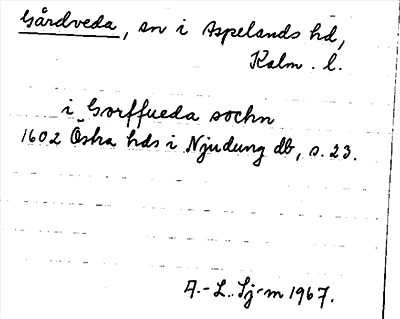 Gårdveda, sn i Aspelands hd,
Kalm. l.
i Gorffueda sochn
1602 Östra hds i Njudung db, s. 23.
A.-L. Sj-m 1967.